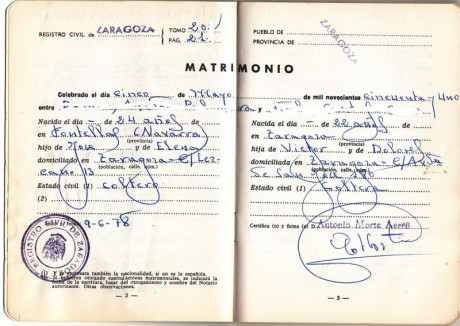 REGISTRO CIVIL de ZARAGOZA
TOMO 20
PAG. 21
MATRIMONIO
Celebrado el día cinco de Mayo
entre
Nacido el día - de 24 años de
en Fontellas (Navarra)
(provincia)
hijo de José y de Elena
domiciliado en Zaragoza - c/
(población, calle, núm.)
Estado civil (1) soltero
(2)
9-6-78
REGISTRO CIVIL DE ZARAGOZA
(1) Se expresará también la nacionalidad, si no es la española.
(2) Si se hubieren otorgado capitulaciones matrimoniales, se indicará la fecha de la escritura, lugar del otorgamiento y nombre del Notario autorizante. Otras observaciones.
— 2 —
PUEBLO DE
PROVINCIA DE
ZARAGOZA
de mil novecientos cincuenta y uno
Nacida el día - de 22 años de
en Zaragoza
(provincia)
hija de Victor y de Dolores
domiciliada en Zaragoza - c/
(población, calle, núm.)
Estado civil (1) Soltera
Certifica (n) y firma (n) D.
Antonio Morte
— 3 —